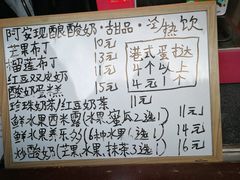 阿宝现酿酸奶·甜品·冷热饮
芒果布丁 10元
榴莲布丁 13元
红豆双皮奶 11元
酸奶蛋糕 5元
港式蛋挞
4个以上
4元1个
珍珠奶茶/红豆奶茶 11元
鲜水果西米露(水果 2选1) 11元
鲜水果养乐多(6种水果1选1) 14元
炒酸奶(芒果,水果,抹茶3选1) 16元